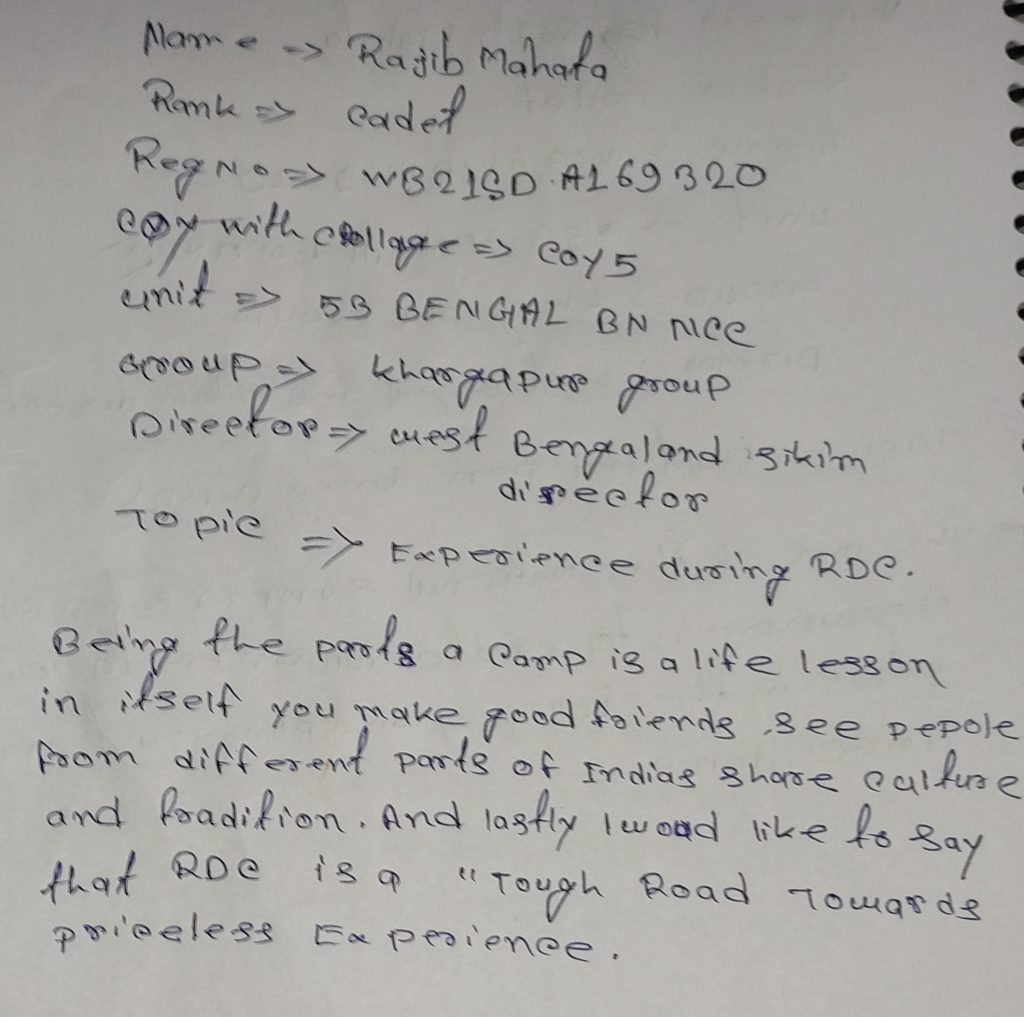 Name => Rajib Mahata
Rank => cadet
Reg No => WB21SDA169320
coy with collage => coy 5
unit => 5B BENGAL BN NCC
Group => khargapur group
Director => west Bengal and sikim
director
Topic => Experience during RDC.
Being the parts a Camp is a life lesson
in itself you make good friends, see pepole
from different parts of Indias share culture
and tradition. And lastly I woud like to say
that RDC is a "Tough Road Towards
priceless Experience.